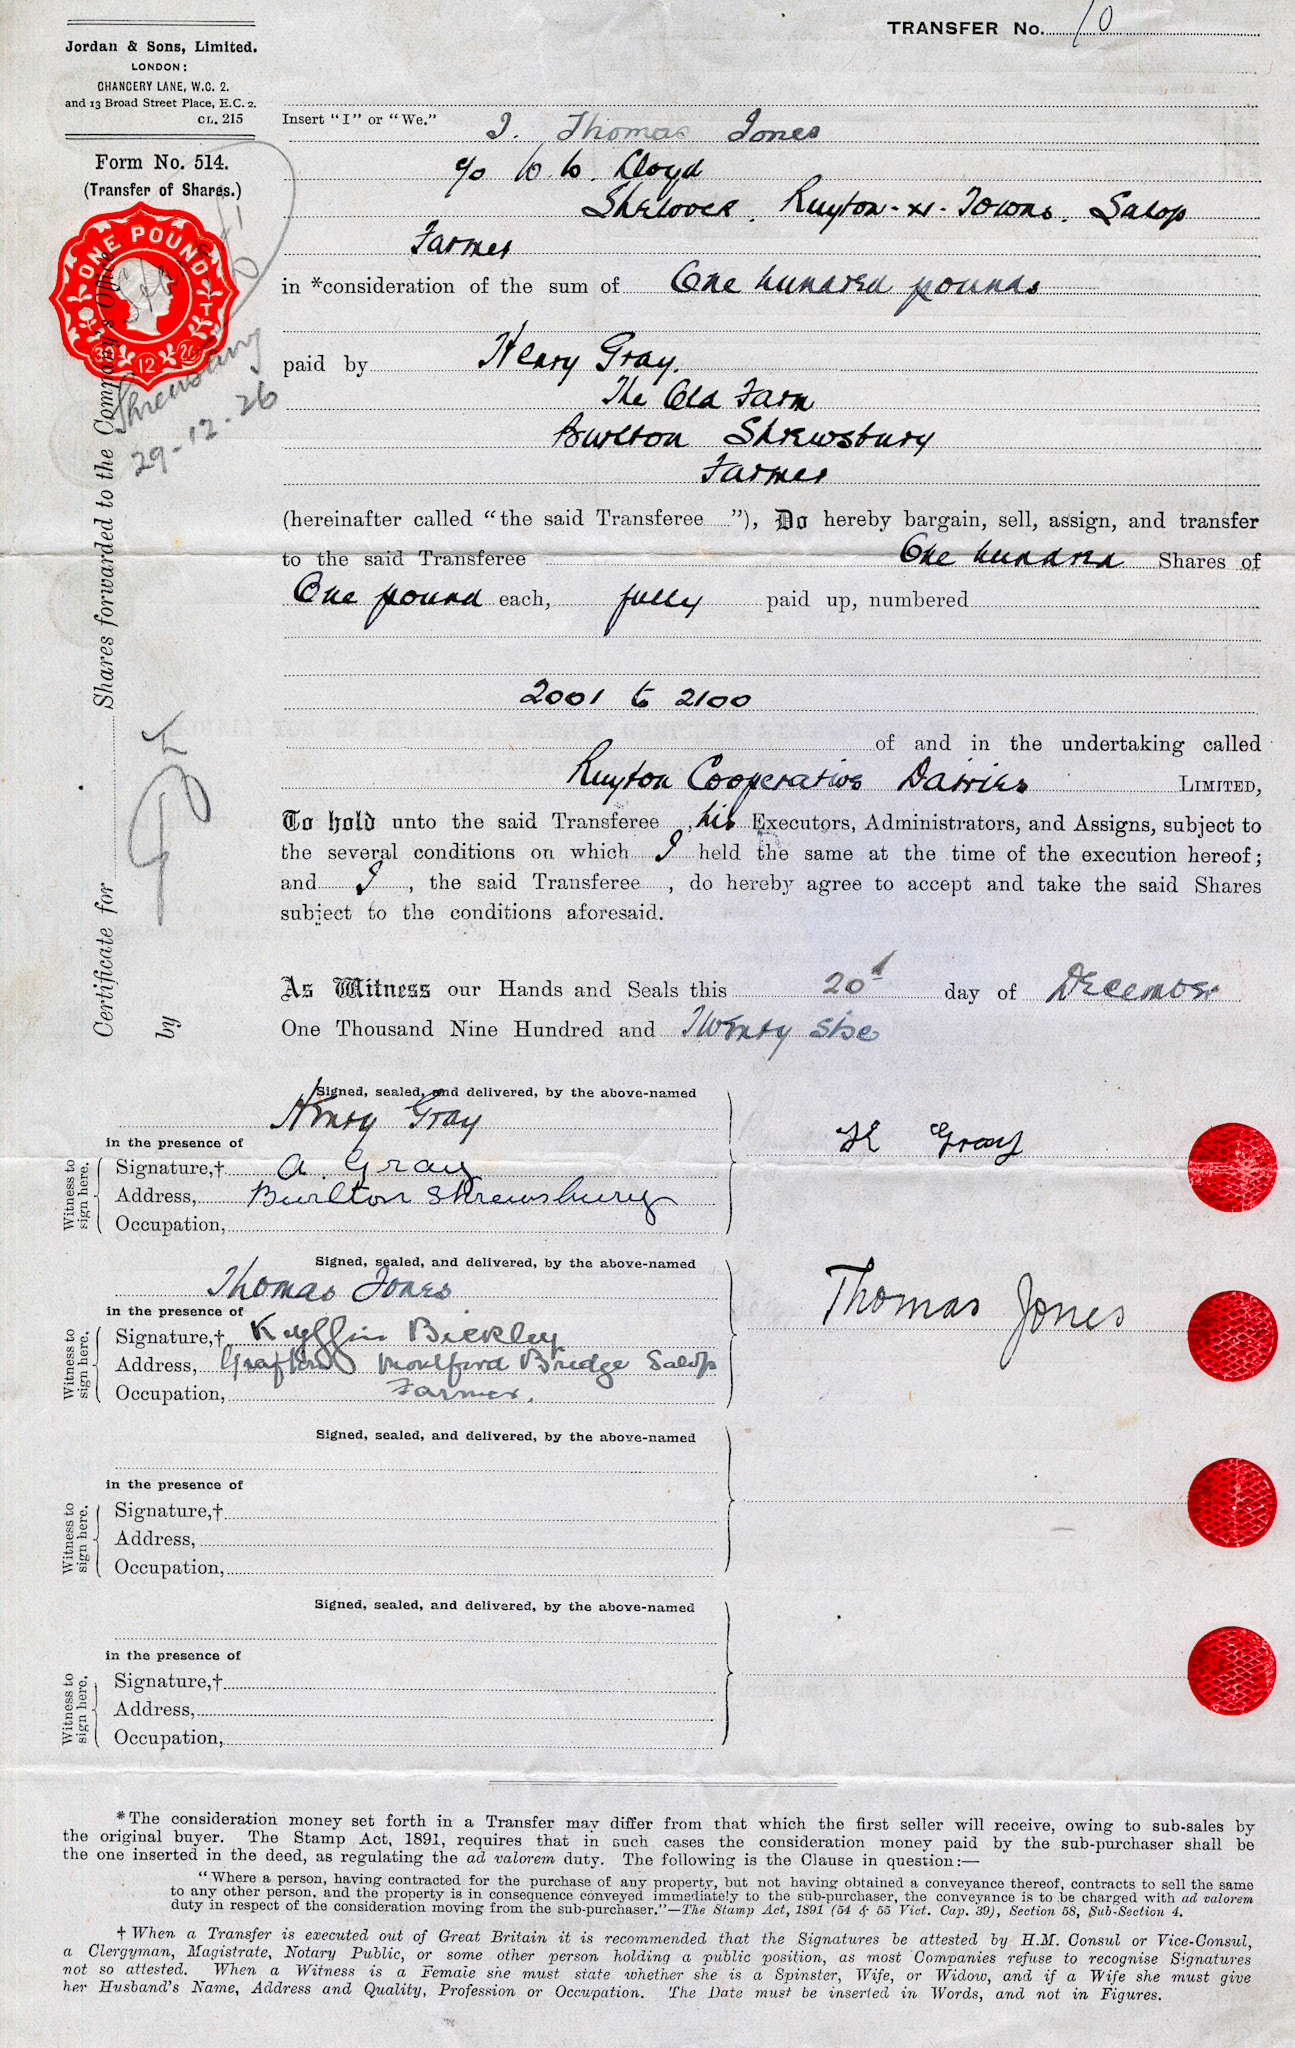 TRANSFER No. 10
Jordan & Sons, Limited.
LONDON:
CHANCERY LANE, W.C. 2.
and 13 Broad Street Place, E.C. 2.
CL. 215
Form No. 514.
(Transfer of Shares.)
ONE POUND
12 26
Shrewsbury
29-12-26
Certificate for Shares forwarded to the Company's Office
by
Insert "I" or "We."
I. Thomas Jones
c/o W. W. Lloyd
Shelvock. Ruyton-XI-Towns. Salop
Farmer
in *consideration of the sum of One hundred pounds
paid by Henry Gray.
The Old Farm
Burlton Shrewsbury
Farmer
(hereinafter called "the said Transferee "), Do hereby bargain, sell, assign, and transfer
to the said Transferee One hundred Shares of
One pound each, fully paid up, numbered
2001 to 2100
of and in the undertaking called
Ruyton Cooperative Dairies LIMITED,
To hold unto the said Transferee , his Executors, Administrators, and Assigns, subject to
the several conditions on which I held the same at the time of the execution hereof;
and I , the said Transferee , do hereby agree to accept and take the said Shares
subject to the conditions aforesaid.
As Witness our Hands and Seals this 20 day of December
One Thousand Nine Hundred and Twenty six
Signed, sealed, and delivered, by the above-named
Henry Gray
in the presence of
Witness to sign here.
Signature,† A. Gray
Address, Burlton Shrewsbury
Occupation,
H Gray
Signed, sealed, and delivered, by the above-named
Thomas Jones
in the presence of
Witness to sign here.
Signature,† Kyffin Bickley
Address, Grafton Montford Bridge Salop
Occupation, Farmer.
Thomas Jones
Signed, sealed, and delivered, by the above-named
in the presence of
Witness to sign here.
Signature,†
Address,
Occupation,
Signed, sealed, and delivered, by the above-named
in the presence of
Witness to sign here.
Signature,†
Address,
Occupation,
*The consideration money set forth in a Transfer may differ from that which the first seller will receive, owing to sub-sales by
the original buyer. The Stamp Act, 1891, requires that in such cases the consideration money paid by the sub-purchaser shall be
the one inserted in the deed, as regulating the ad valorem duty. The following is the Clause in question:—
"Where a person, having contracted for the purchase of any property, but not having obtained a conveyance thereof, contracts to sell the same
to any other person, and the property is in consequence conveyed immediately to the sub-purchaser, the conveyance is to be charged with ad valorem
duty in respect of the consideration moving from the sub-purchaser."—The Stamp Act, 1891 (54 & 55 Vict. Cap. 39), Section 58, Sub-Section 4.
† When a Transfer is executed out of Great Britain it is recommended that the Signatures be attested by H.M. Consul or Vice-Consul,
a Clergyman, Magistrate, Notary Public, or some other person holding a public position, as most Companies refuse to recognise Signatures
not so attested. When a Witness is a Female she must state whether she is a Spinster, Wife, or Widow, and if a Wife she must give
her Husband's Name, Address and Quality, Profession or Occupation. The Date must be inserted in Words, and not in Figures.